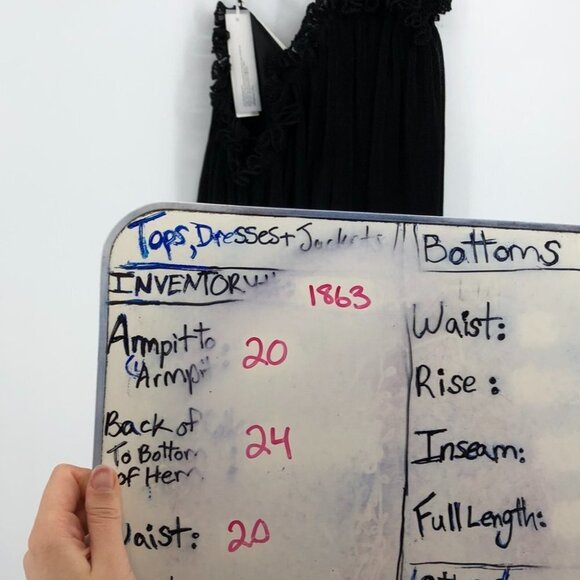 Tops, Dresses + Jackets
Bottoms
INVENTORY
1863
Armpit to
Armpi
20
Back of
To Bottom
of Hem
24
Waist: 20
Waist:
Rise:
Inseam:
Full Length: